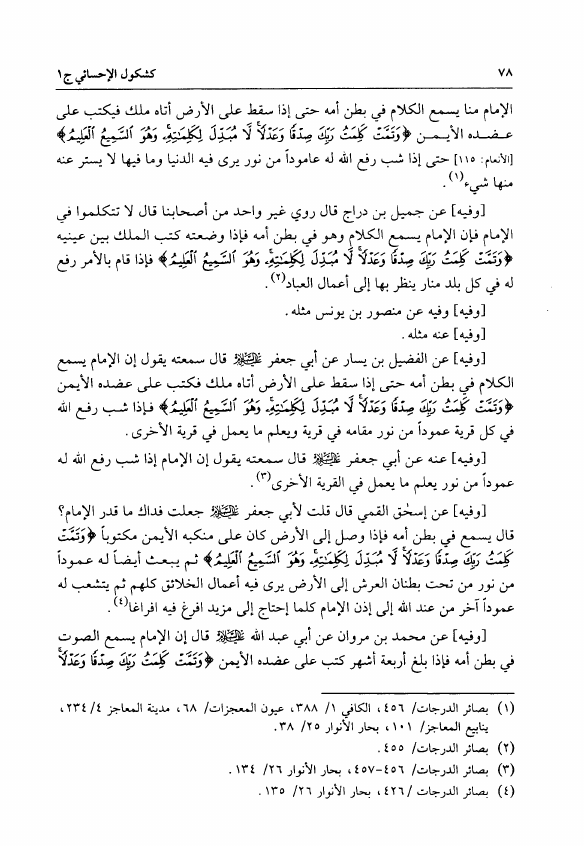 ٧٨ كشكول الإحسائي ج١
الإمام منا يسمع الكلام في بطن أمه حتى إذا سقط على الأرض أتاه ملك فيكتب على
عضده الأيمن ﴿وَتَمَّتْ كَلِمَتُ رَبِّكَ صِدْقًا وَعَدْلًا لَّا مُبَدِّلَ لِكَلِمَٰتِهِۦ وَهُوَ ٱلسَّمِيعُ ٱلْعَلِيمُ﴾
[الأنعام: ١١٥] حتى إذا شب رفع الله له عاموداً من نور يرى فيه الدنيا وما فيها لا يستر عنه
منها شيء(١).
[وفيه] عن جميل بن دراج قال روي غير واحد من أصحابنا قال لا تتكلموا في
الإمام فإن الإمام يسمع الكلام وهو في بطن أمه فإذا وضعته كتب الملك بين عينيه
﴿وَتَمَّتْ كَلِمَتُ رَبِّكَ صِدْقًا وَعَدْلًا لَّا مُبَدِّلَ لِكَلِمَٰتِهِۦ وَهُوَ ٱلسَّمِيعُ ٱلْعَلِيمُ﴾ فإذا قام بالأمر رفع
له في كل بلد منار ينظر بها إلى أعمال العباد(٢).
[وفيه] وفيه عن منصور بن يونس مثله.
[وفيه] عنه مثله.
[وفيه] عن الفضيل بن يسار عن أبي جعفر عليه السلام قال سمعته يقول إن الإمام يسمع
الكلام في بطن أمه حتى إذا سقط على الأرض أتاه ملك فكتب على عضده الأيمن
﴿وَتَمَّتْ كَلِمَتُ رَبِّكَ صِدْقًا وَعَدْلًا لَّا مُبَدِّلَ لِكَلِمَٰتِهِۦ وَهُوَ ٱلسَّمِيعُ ٱلْعَلِيمُ﴾ فإذا شب رفع الله
في كل قرية عموداً من نور مقامه في قرية ويعلم ما يعمل في قرية الأخرى.
[وفيه] عنه عن أبي جعفر عليه السلام قال سمعته يقول إن الإمام إذا شب رفع الله له
عموداً من نور يعلم ما يعمل في القرية الأخرى(٣).
[وفيه] عن إسحٰق القمي قال قلت لأبي جعفر عليه السلام جعلت فداك ما قدر الإمام؟
قال يسمع في بطن أمه فإذا وصل إلى الأرض كان على منكبه الأيمن مكتوباً ﴿وَتَمَّتْ
كَلِمَتُ رَبِّكَ صِدْقًا وَعَدْلًا لَّا مُبَدِّلَ لِكَلِمَٰتِهِۦ وَهُوَ ٱلسَّمِيعُ ٱلْعَلِيمُ﴾ ثم يبعث أيضاً له عموداً
من نور من تحت بطنان العرش إلى الأرض يرى فيه أعمال الخلائق كلهم ثم يتشعب له
عموداً آخر من عند الله إلى إذن الإمام كلما إحتاج إلى مزيد افرغ فيه افراغا(٤).
[وفيه] عن محمد بن مروان عن أبي عبد الله عليه السلام قال إن الإمام يسمع الصوت
في بطن أمه فإذا بلغ أربعة أشهر كتب على عضده الأيمن ﴿وَتَمَّتْ كَلِمَتُ رَبِّكَ صِدْقًا وَعَدْلًا
(١) بصائر الدرجات/ ٤٥٦، الكافي ١/ ٣٨٨، عيون المعجزات/ ٦٨، مدينة المعاجز ٤/ ٢٣٤،
ينابيع المعاجز/ ١٠١، بحار الأنوار ٢٥/ ٣٨.
(٢) بصائر الدرجات/ ٤٥٥.
(٣) بصائر الدرجات/ ٤٥٦-٤٥٧، بحار الأنوار ٢٦/ ١٣٤.
(٤) بصائر الدرجات /٤٢٦، بحار الأنوار ٢٦/ ١٣٥.